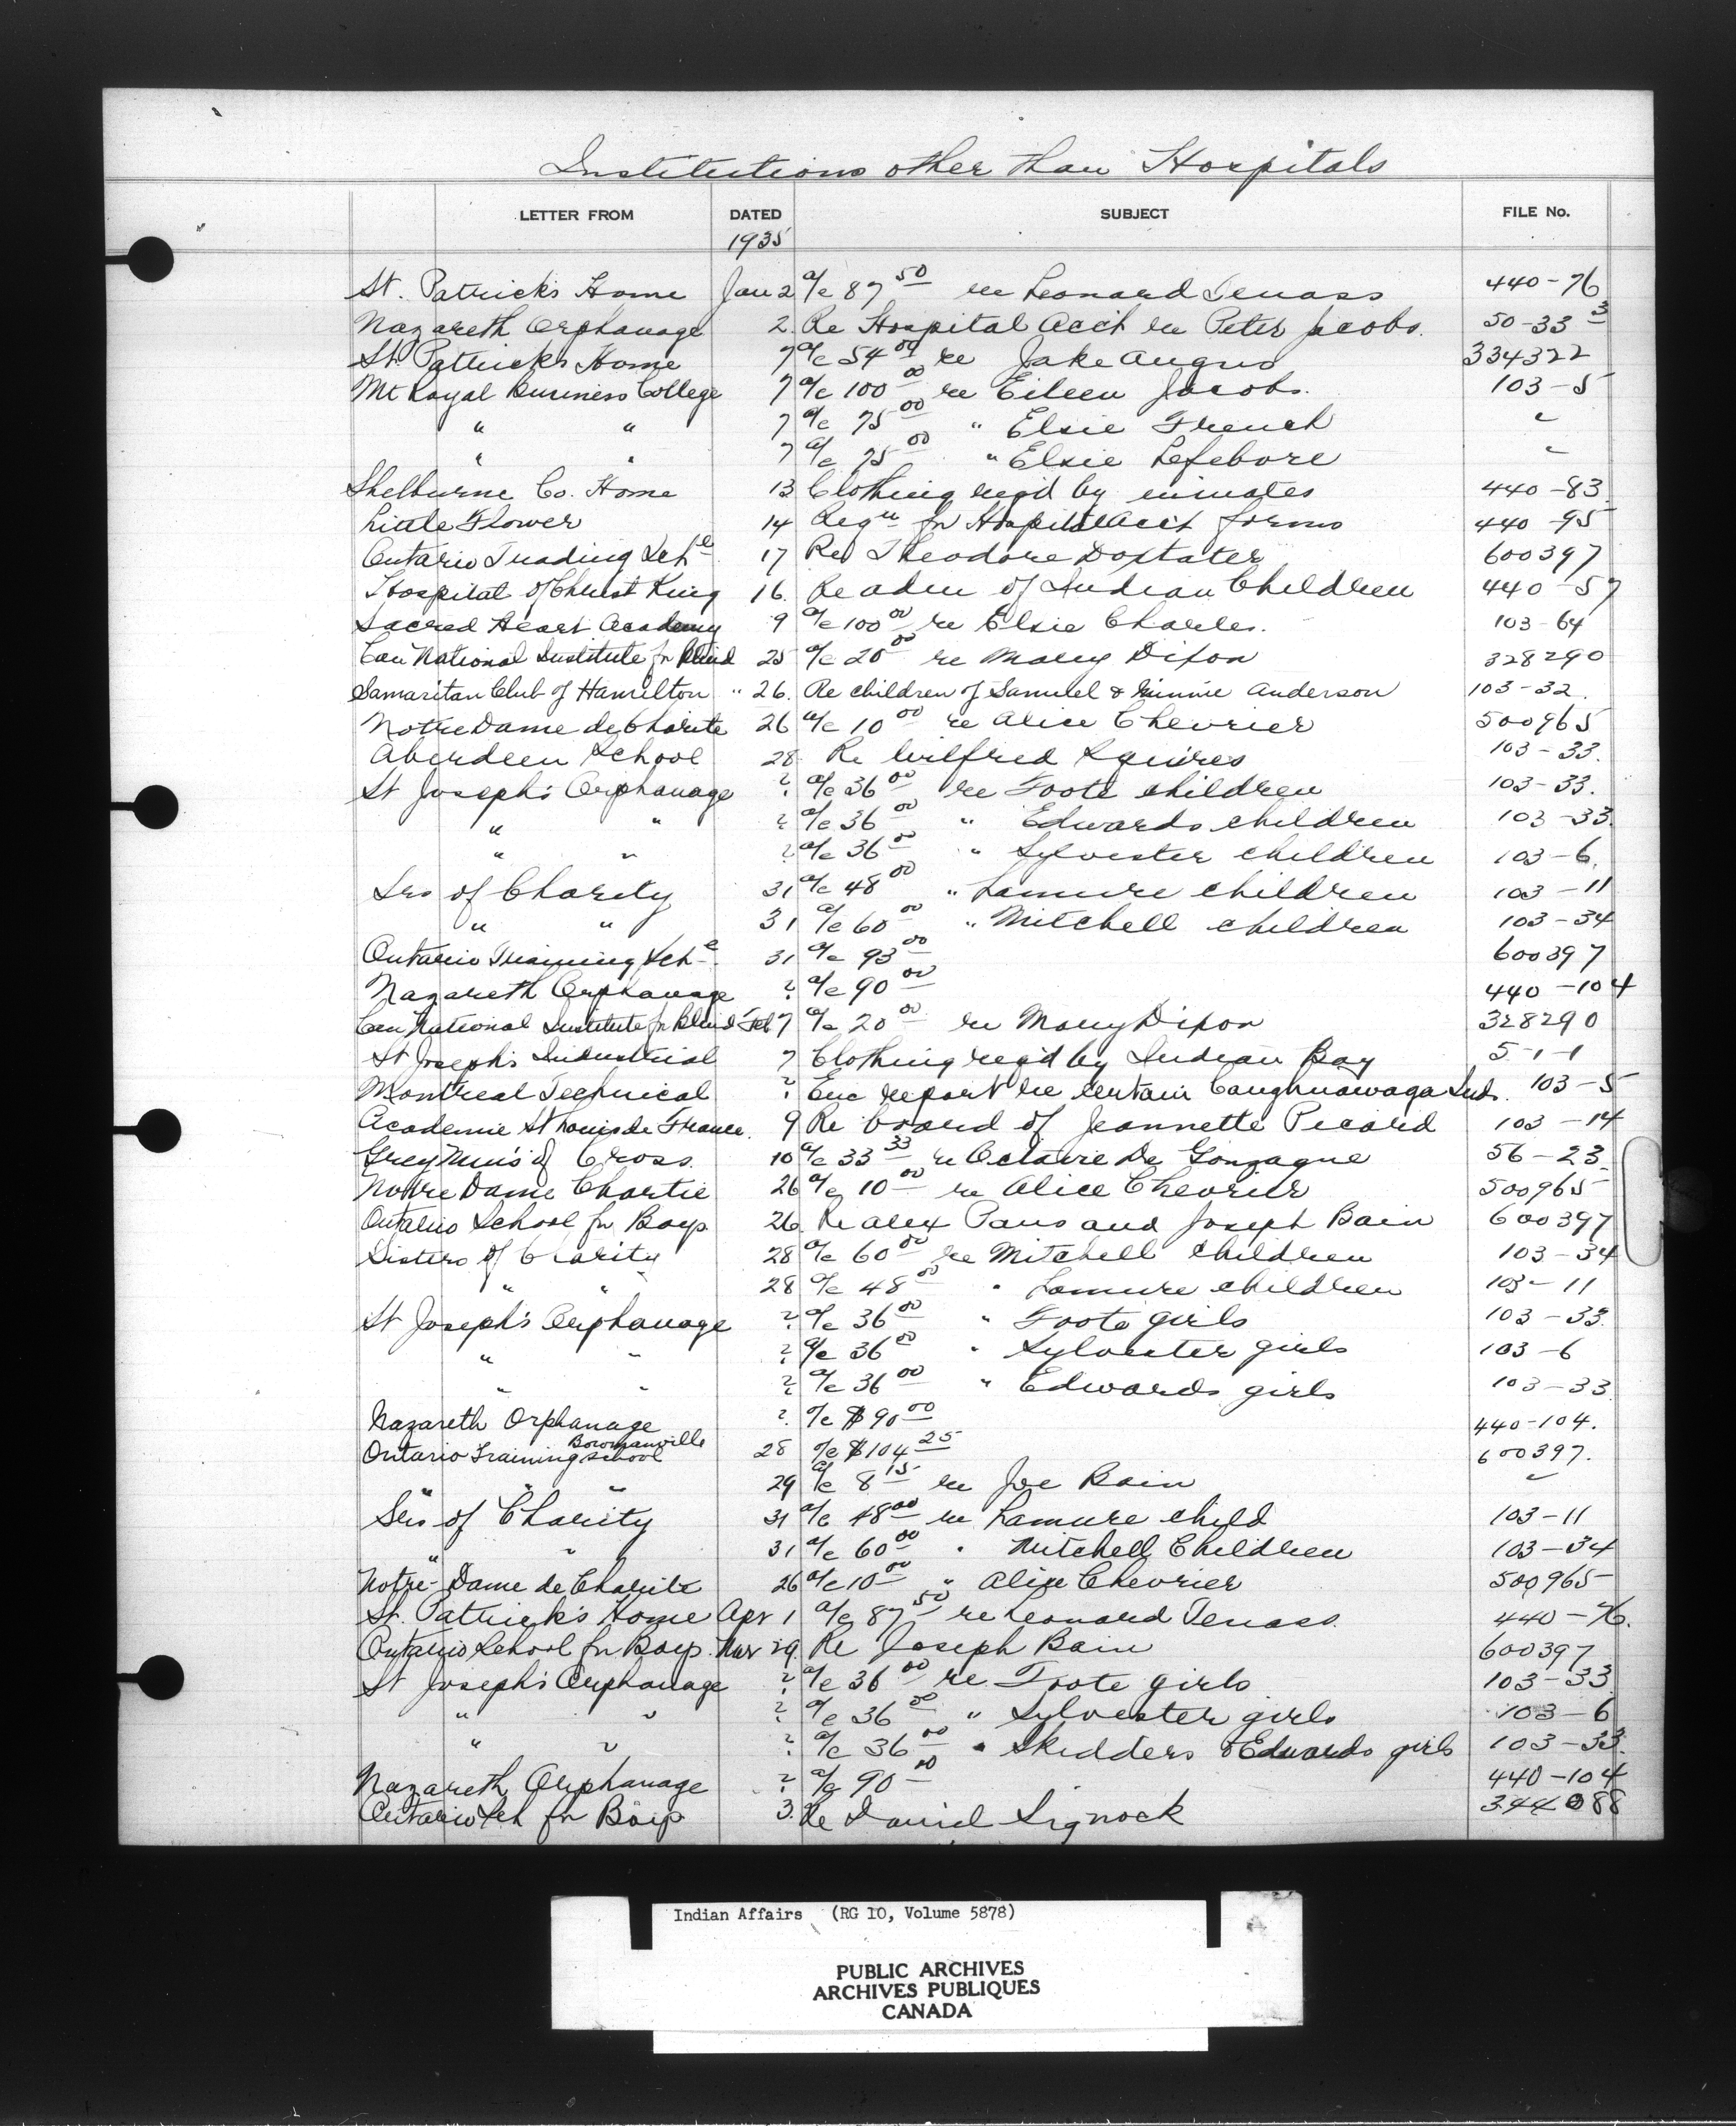 Institutions other than Hospitals
LETTER FROM DATED SUBJECT FILE No.
1935
St. Patrick's Home Jan 2 a/c 87 50 re Leonard Tenass 440-76
Nazareth Orphanage 2. Re Hospital Acct re Peter Jacobs. 50-33 3
St. Patricks Home 7 a/c 54 00 re Jake Angus 334322
Mt Royal Business College 7 a/c 100 00 re Eileen Jacobs. 103-5
" " 7 a/c 75 00 " Elsie French "
" " 7 a/c 75 00 " Elsie Lefebvre "
Shelburne Co. Home 13 Clothing reqd by inmates 440-83.
Little Flower 14 Reqn for Hospital Acct forms 440-95
Ontario Trading Sch 17 Re Theodore Doxtater 600397
Hospital of Christ King 16. Re adm of Indian Children 440-57
Sacred Heart Academy 9 a/c 100 00 re Elsie Charles. 103-64
Can National Institute for Blind 25 a/c 20 00 re Mary Dixon 328290
Samaritan Club of Hamilton " 26. Re children of Samuel & Minnie Anderson 103-32.
Notre Dame de Charite 26 a/c 10 00 re Alice Chevrier 500965
Aberdeen School 28 Re Wilfred Squires 103-33.
St Joseph's Orphanage ? a/c 36 00 re Foote children 103-33.
" " ? a/c 36 00 " Edwards children 103-33.
" " ? a/c 36 00 " Sylvester children 103-6.
Srs of Charity 31 a/c 48 00 " Lamure children 103-11
" " 31 a/c 60 00 " Mitchell children 103-34
Ontario Training Sch 31 a/c 93 00 600397
Nazareth Orphanage ? a/c 90 00 440-104
Can National Institute for Blind Feb 7 a/c 20 00 re Mary Dixon 328290
St Joseph's Industrial 7 Clothing reqd by Indian Boy 5-1-1
Montreal Technical ? Enc report re certain Caughnawaga Inds. 103-5
Academie St Louis de France. 9 Re board of Jeannette Picard 103-14
Grey Nun's of Cross. 10 a/c 33 33 re Octavie De Gonzague 56-23.
Notre Dame Chartie 26 a/c 10 00 re Alice Chevrier 500965
Ontario School for Boys 26. Re Alex Paus and Joseph Bain 600397
Sisters of Charity 28 a/c 60 00 re Mitchell children 103-34
" " 28 a/c 48 00 " Lamure children 103-11
St Joseph's Orphanage ? a/c 36 00 " Foote girls 103-33.
" " ? a/c 36 00 " Sylvester girls 103-6
" " ? a/c 36 00 " Edwards girls 103-33.
Nazareth Orphanage ?. a/c $90 00 440-104.
Ontario Training School Bowmanville 28 a/c $104 25 600397.
" " " 29 a/c 8 15 re Joe Bain "
Srs of Charity 31 a/c 48 00 re Lamure child 103-11
" " 31 a/c 60 00 " Mitchell Children 103-34
Notre-Dame de Charite 26 a/c 10 00 " Alice Chevrier 500965
St. Patrick's Home Apr 1 a/c 87 50 re Leonard Tenass. 440-76.
Ontario School for Boys. Mar 29. Re Joseph Bain 600397
St Joseph's Orphanage ? a/c 36 00 re Foote girls 103-33
" " ? a/c 36 00 " Sylvester girls 103-6
" " ? a/c 36 00 " Skidders & Edwards girls 103-33.
Nazareth Orphanage ? a/c 90 00 440-104
Ontario Sch for Boys 3. Re Daniel Signock 344088
Indian Affairs (RG 10, Volume 5878)
PUBLIC ARCHIVES
ARCHIVES PUBLIQUES
CANADA